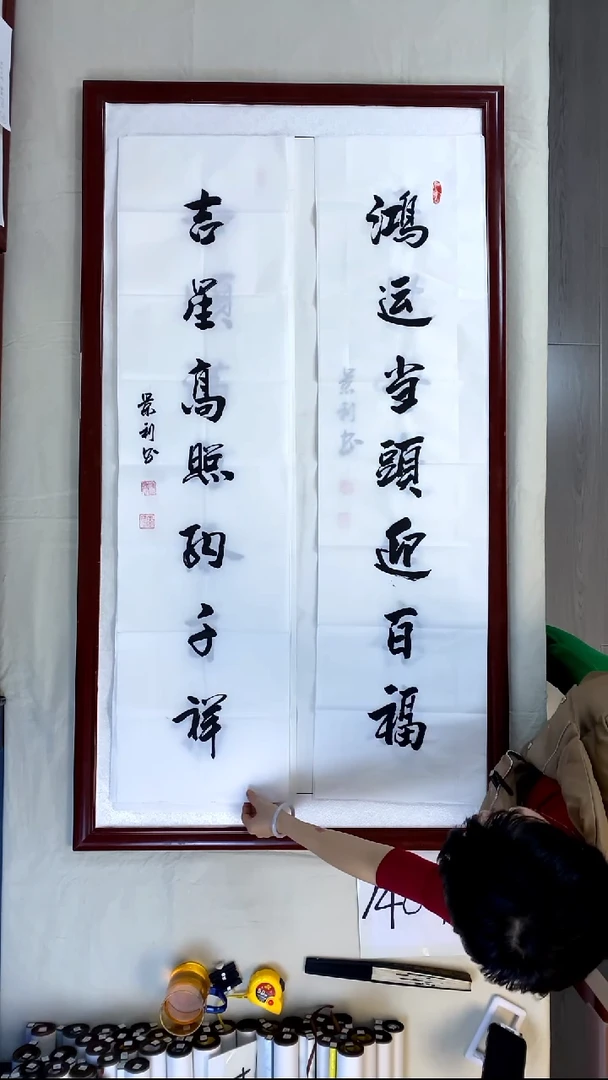 鸿运当頭迎百福
吉星高照纳千祥
景利书
140